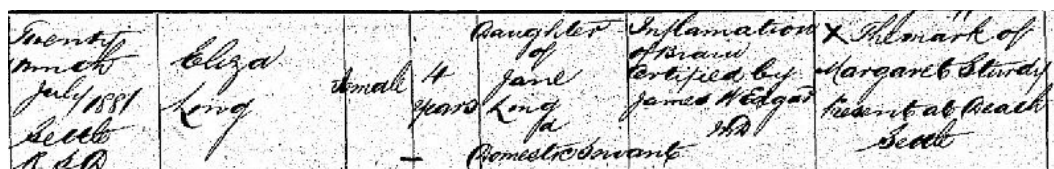 Twenty
Ninth
July 1881
Settle
R.S.D
Eliza
Long
Female
4
years
Daughter
of
Jane
Long
a
Domestic Servant
Inflamation
of Brain
Certified by
James W Edgar
M.D
X The mark of
Margaret Sturdy
Present at Death
Settle